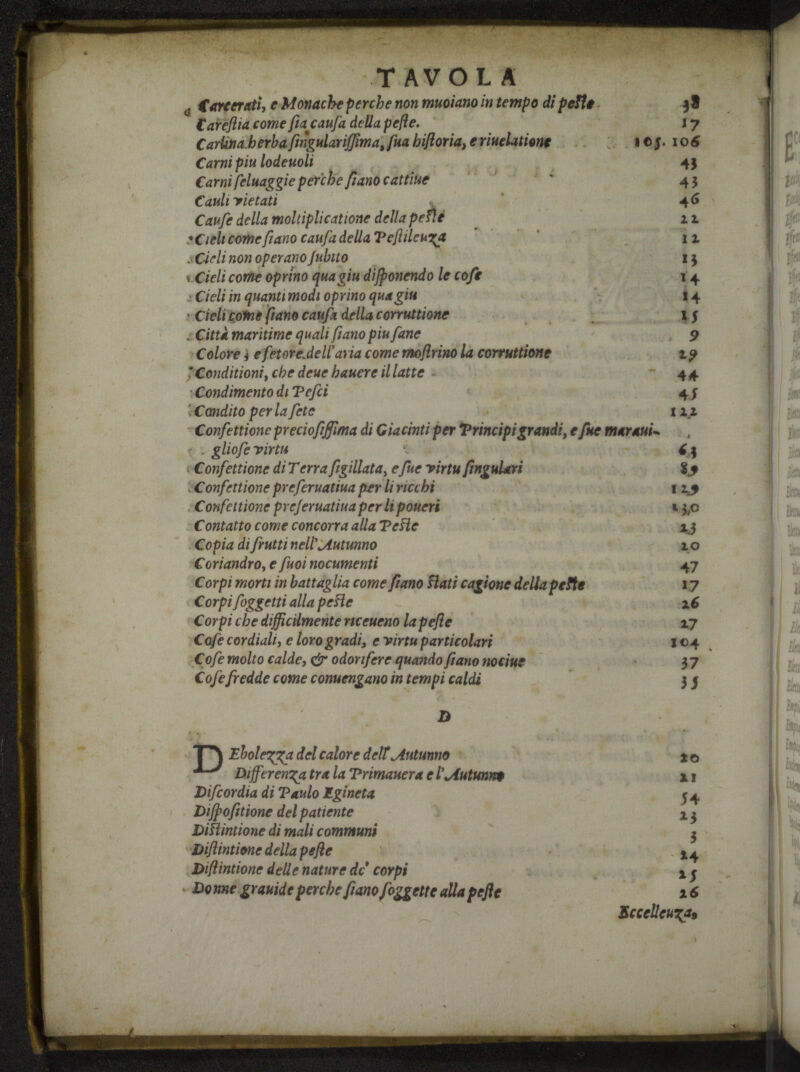 TAVOLA
Carcerati, e Monache perche non muoiano in tempo di peste. 38
Carestia come sia causa della peste. 17
Carlina herba singularissima, sua historia, e riuelatione 105. 106
Carni piu lodeuoli 43
Carni seluaggie perche siano cattiue 43
Cauli vietati 46
Cause della moltiplicatione della peste 22
Cieli come siano causa della Pestileuza 12
Cieli non operano subito 13
Cieli come oprino qua giu disponendo le cose 14
Cieli in quanti modi oprino qua giu 14
Cieli come siano causa della corruttione 15
Città maritime quali siano piu sane 9
Colore, e fetore dell'aria come mostrino la corruttione 29
Conditioni, che deue hauere il latte 44
Condimento di Pesci 45
Condito per la sete 122
Confettione preciosissima di Giacinti per Principi grandi, e sue maraui-
gliose virtu 63
Confettione di Terra sigillata, e sue virtu singulari 89
Confettione preseruatiua per li ricchi 129
Confettione preseruatiua per li poueri 130
Contatto come concorra alla Peste 23
Copia di frutti nell'Autunno 20
Coriandro, e suoi nocumenti 47
Corpi morti in battaglia come siano stati cagione della peste 17
Corpi soggetti alla peste 26
Corpi che difficilmente riceueno la peste 27
Cose cordiali, e loro gradi, e virtu particolari 104
Cose molto calde, & odorifere quando siano nociue 37
Cose fredde come conuengano in tempi caldi 35
D
DEbolezza del calore dell'Autunno 20
Differenza tra la Primauera e l'Autunno 21
Discordia di Paulo Egineta 54
Dispositione del patiente 23
Distintione di mali communi 3
Distintione della peste 24
Distintione delle nature de' corpi 25
Donne grauide perche siano soggette alla peste 26
Eccelleuza,